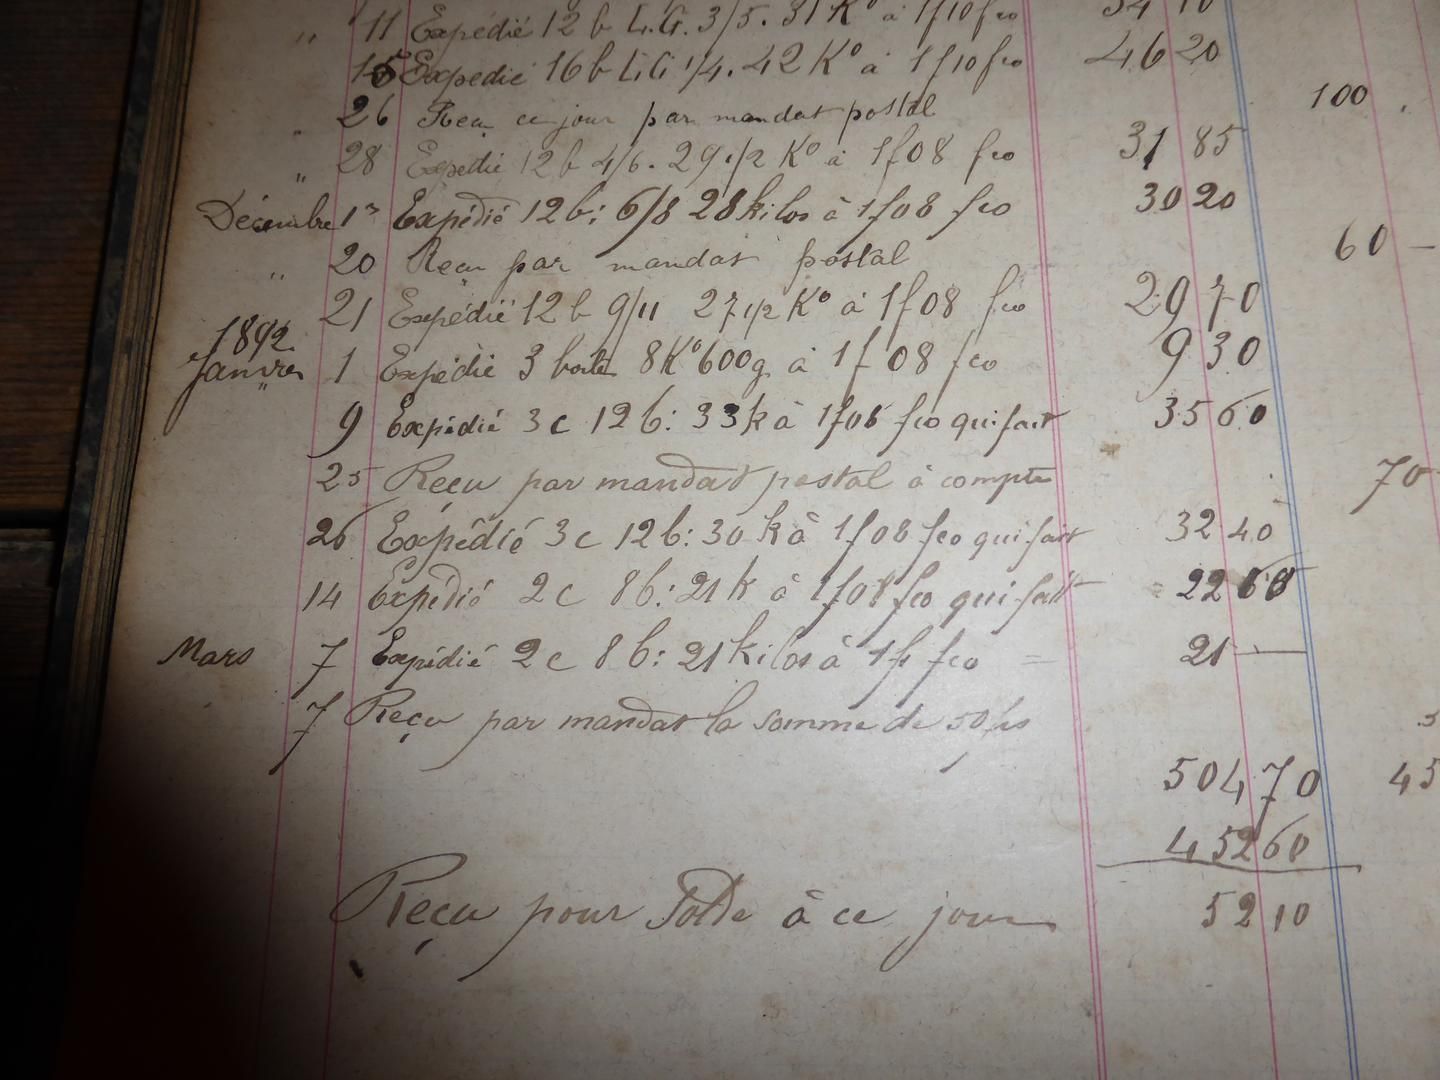 " 11 Expédié 12 b L.G. 3/5. 31 K° à 1f10 fco 34 10
15 Expédié 16 b L.G 1/4. 42 K° à 1f10 fco 46 20
" 26 Reçu ce jour par mandat postal 100
" 28 Expédié 12 b 4/6. 29 1/2 K° à 1f08 fco 31 85
Décembre 1er Expédié 12 b: 6/8 28 kilos à 1f08 fco 30 20
" 20 Recu par mandat postal 60 —
21 Expédié 12 b 9/11 27 1/2 K° à 1f08 fco 29 70
1892
Janvier 1 Expédié 3 boites 8K°600g à 1f08 fco 9 30
" 9 Expédié 3 c 12 b: 33 k à 1f08 fco qui fait 35 60
25 Reçu par mandat postal à compte 70
26 Expédié 3 c 12 b: 30 k à 1f08 fco qui fait 32 40
14 Expédié 2 c 8 b: 21 k à 1f08 fco qui fait = 22
Mars 7 Expédié 2 c 8 b: 21 kilos à 1f fco = 21 —
7 Reçu par mandat la somme de 50 frs 5
504 70 45
452 60
Reçu pour Solde à ce jour 52 10